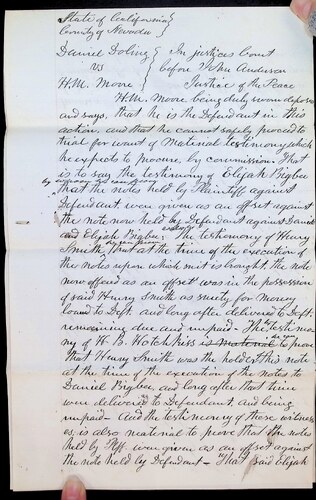 State of California }
County of Nevada }
Daniel Doling } In justices Court
vs } before John Anderson
H.M. Moore } Justice of the Peace
H.M. Moore being duly sworn deposes
and says, that he is the Defendant in this
action, and that he cannot safely proceed to
trial for want of Material testimony which
he expects to procure by commission. That
is to say the testimony of Elijah Bigbee
by
that the notes held by Plaintiff against
Defendant were given as an offset against
the note now held by Defendant against Daniel
and Elijah Bigbee The testimony of Henry
Smith that at the time of the execution of
the notes upon which suit is brought, the note
now offered as an offset was in the possession
of said Henry Smith as surity for money
loaned to Deft. and long after delivered to Deft;
remaining due and unpaid. The testimo
ny of H. B. Hotchkiss is material to prove
That Henry Smith was the holder of this note
at the time of the execution of the notes to
Daniel Bigbee, and long after that time
were delivered to Defendant, and being
unpaid. And the testimony of those witness
es, is also material to prove that the notes
held by Plff. were given as an offset against
the note held by Defendant - That said Elijah